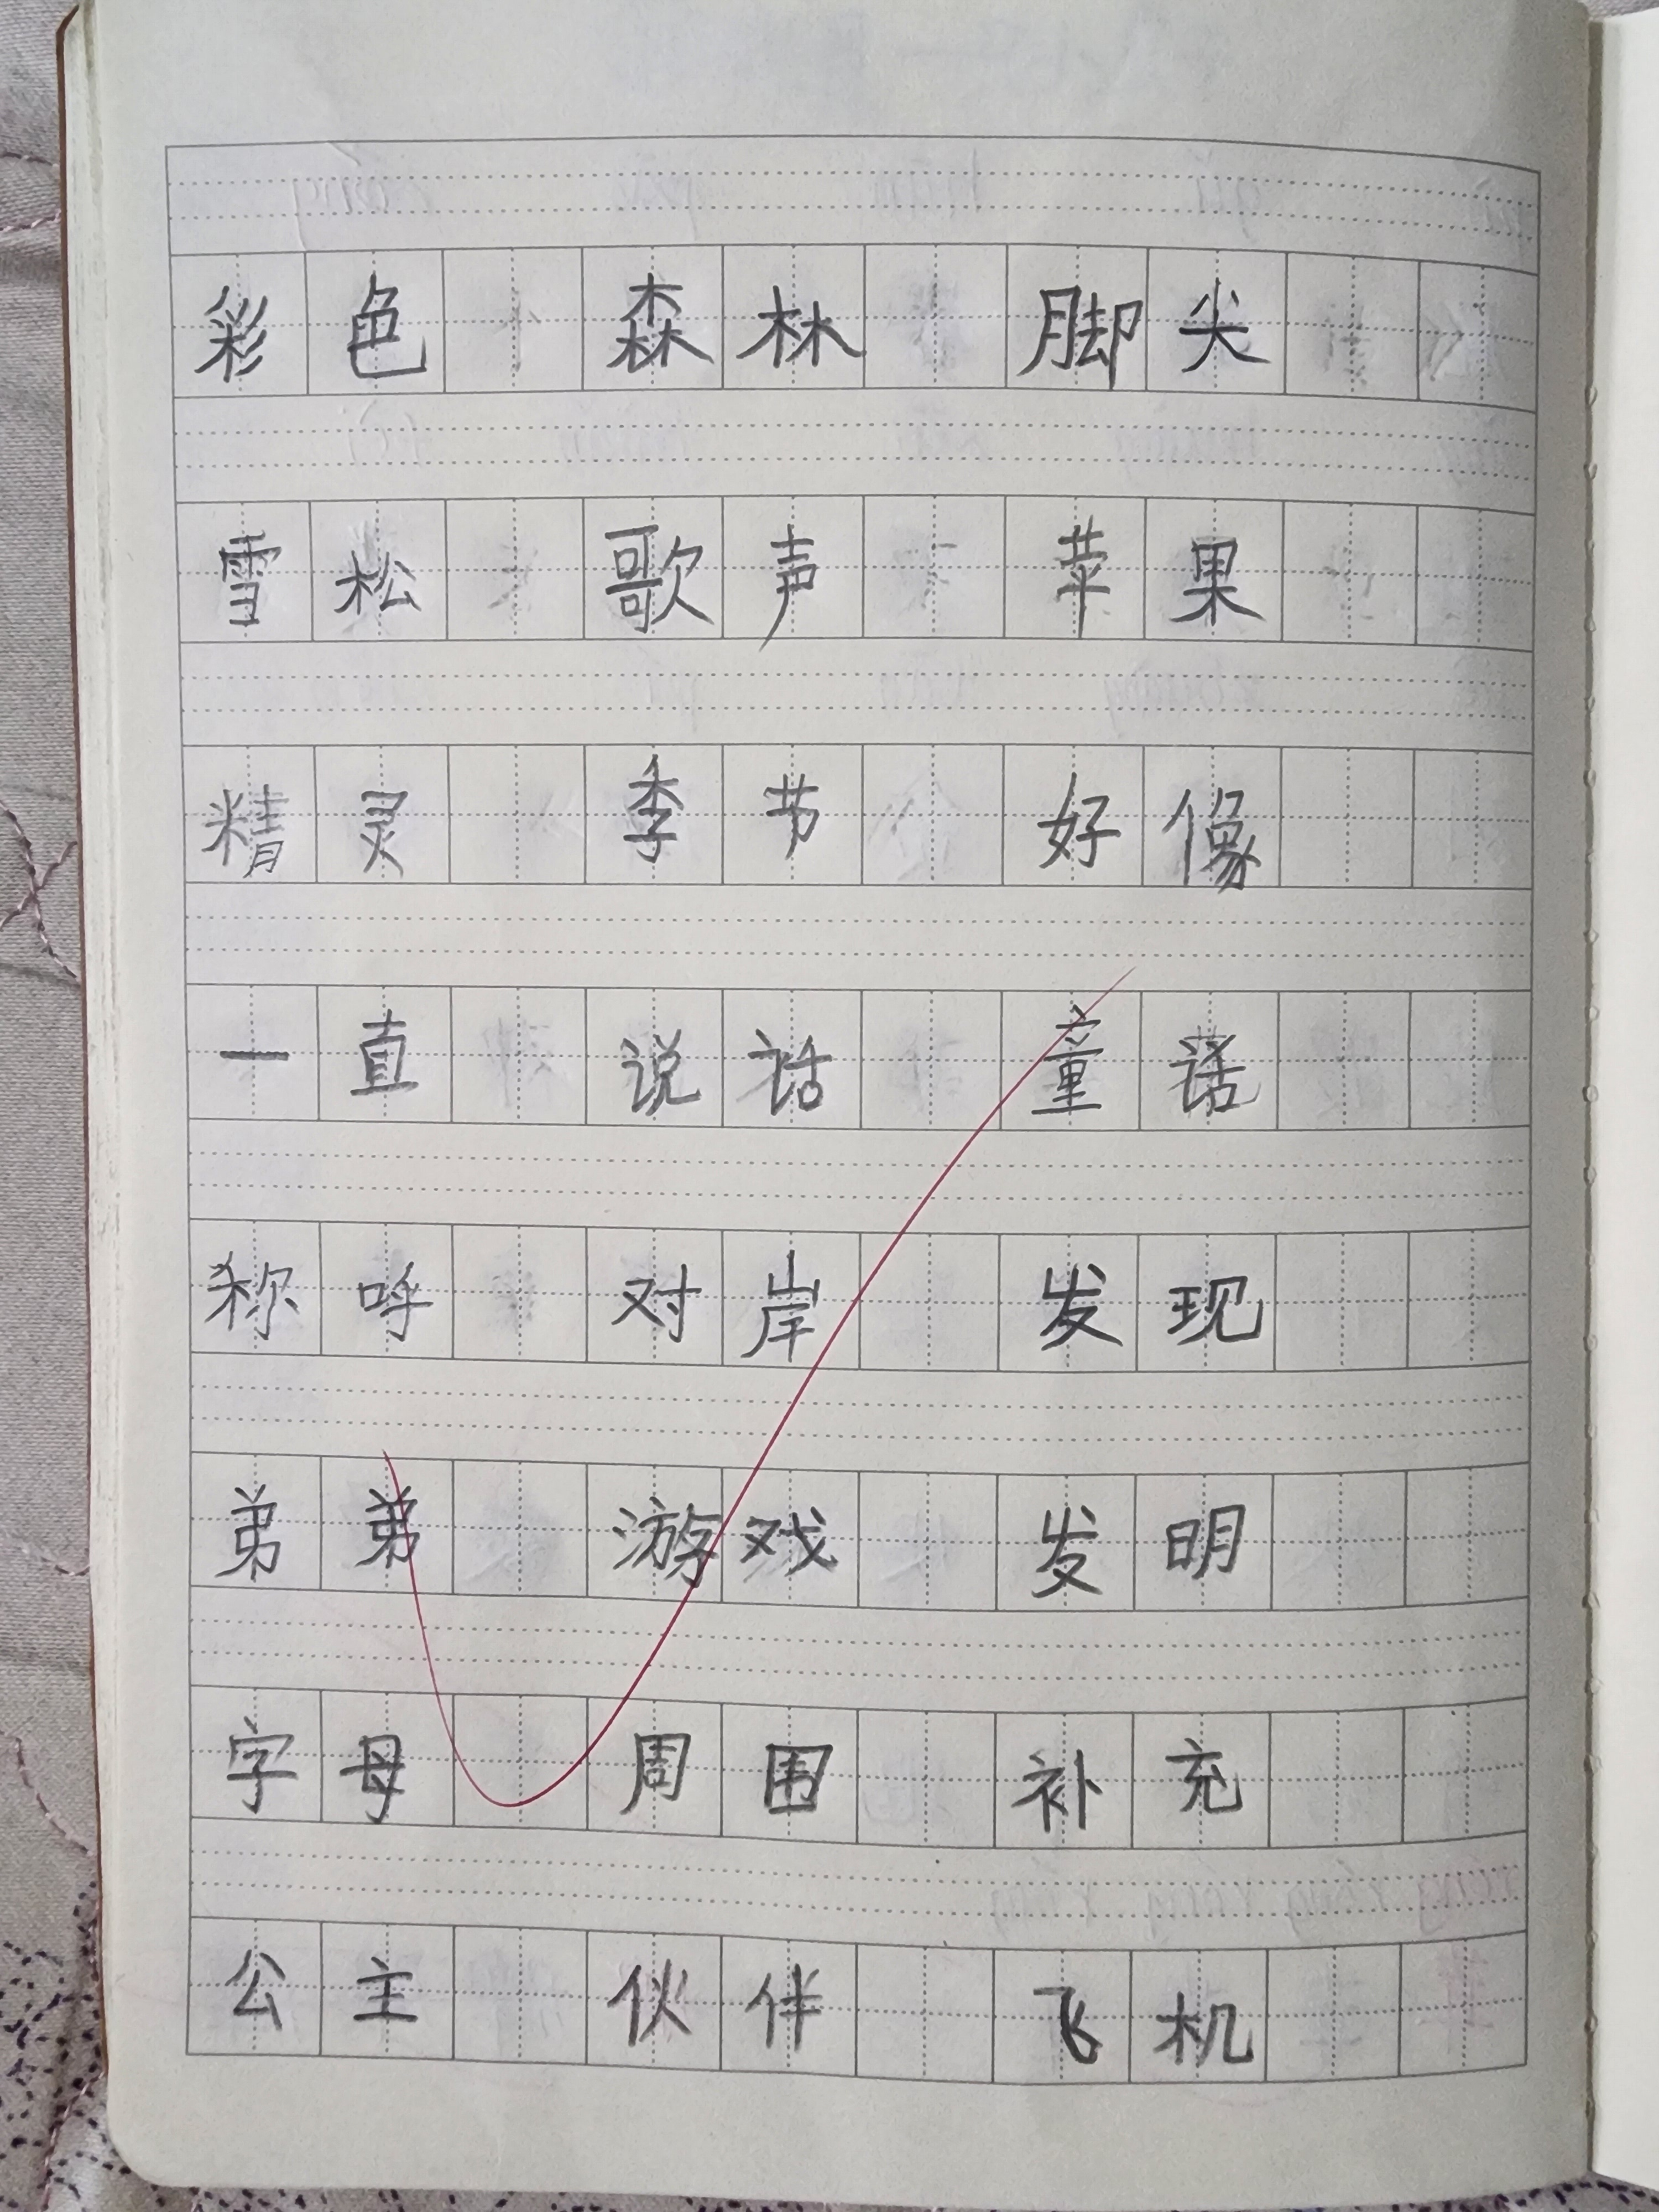 彩色 森林 脚尖
雪松 歌声 苹果
精灵 季节 好像
一直 说话 童话
称呼 对岸 发现
弟弟 游戏 发明
字母 周围 补充
公主 伙伴 飞机